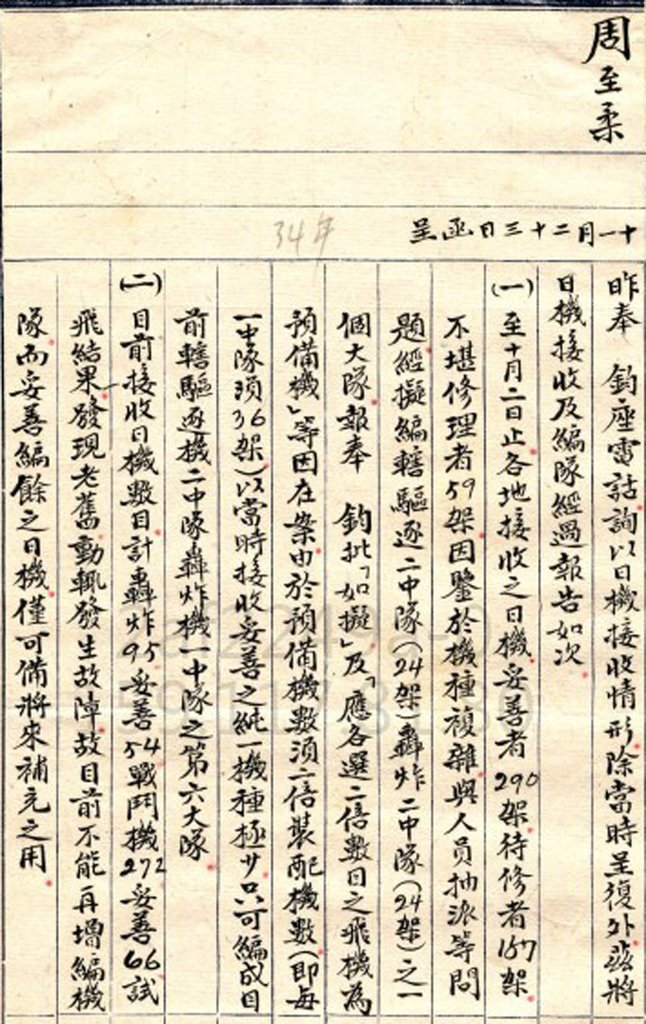 周至柔
十一月二十三日函呈
34年
昨奉　鈞座電話詢以日機接收情形除當時呈復外茲將
日機接收及編隊經過報告如次
(一)至十月二日止各地接收之日機妥善者290架待修者157架
不堪修理者59架因鑒於機種複雜與人員抽派等問
題經擬編轄驅逐二中隊(24架)轟炸二中隊(24架)之一
個大隊報奉　鈞批「如擬」及「應各選二倍數目之飛機為
預備機」等因在案由於預備機數須二倍裝配機數(即每
一中隊須36架)以當時接收妥善之純一機種極少只可編成目
前轄驅逐機二中隊轟炸機一中隊之第六大隊
(二)目前接收日機數目計轟炸95妥善54戰鬥機272妥善66試
飛結果發現老舊動輒發生故障故目前不能再增編機
隊而妥善編餘之日機僅可備將來補充之用